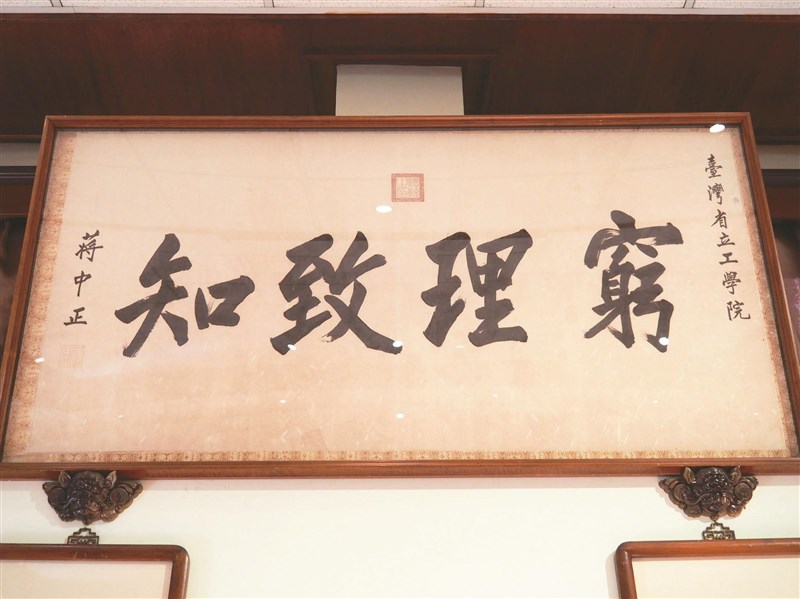 臺灣省立工學院
窮理致知
蔣中正